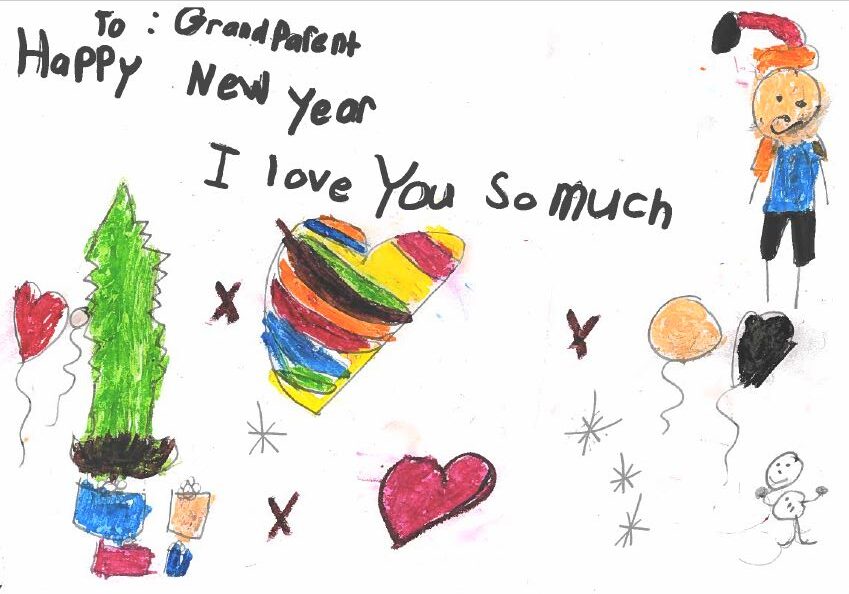 To : Grandparent
Happy New Year
I love You so much
x
x
x